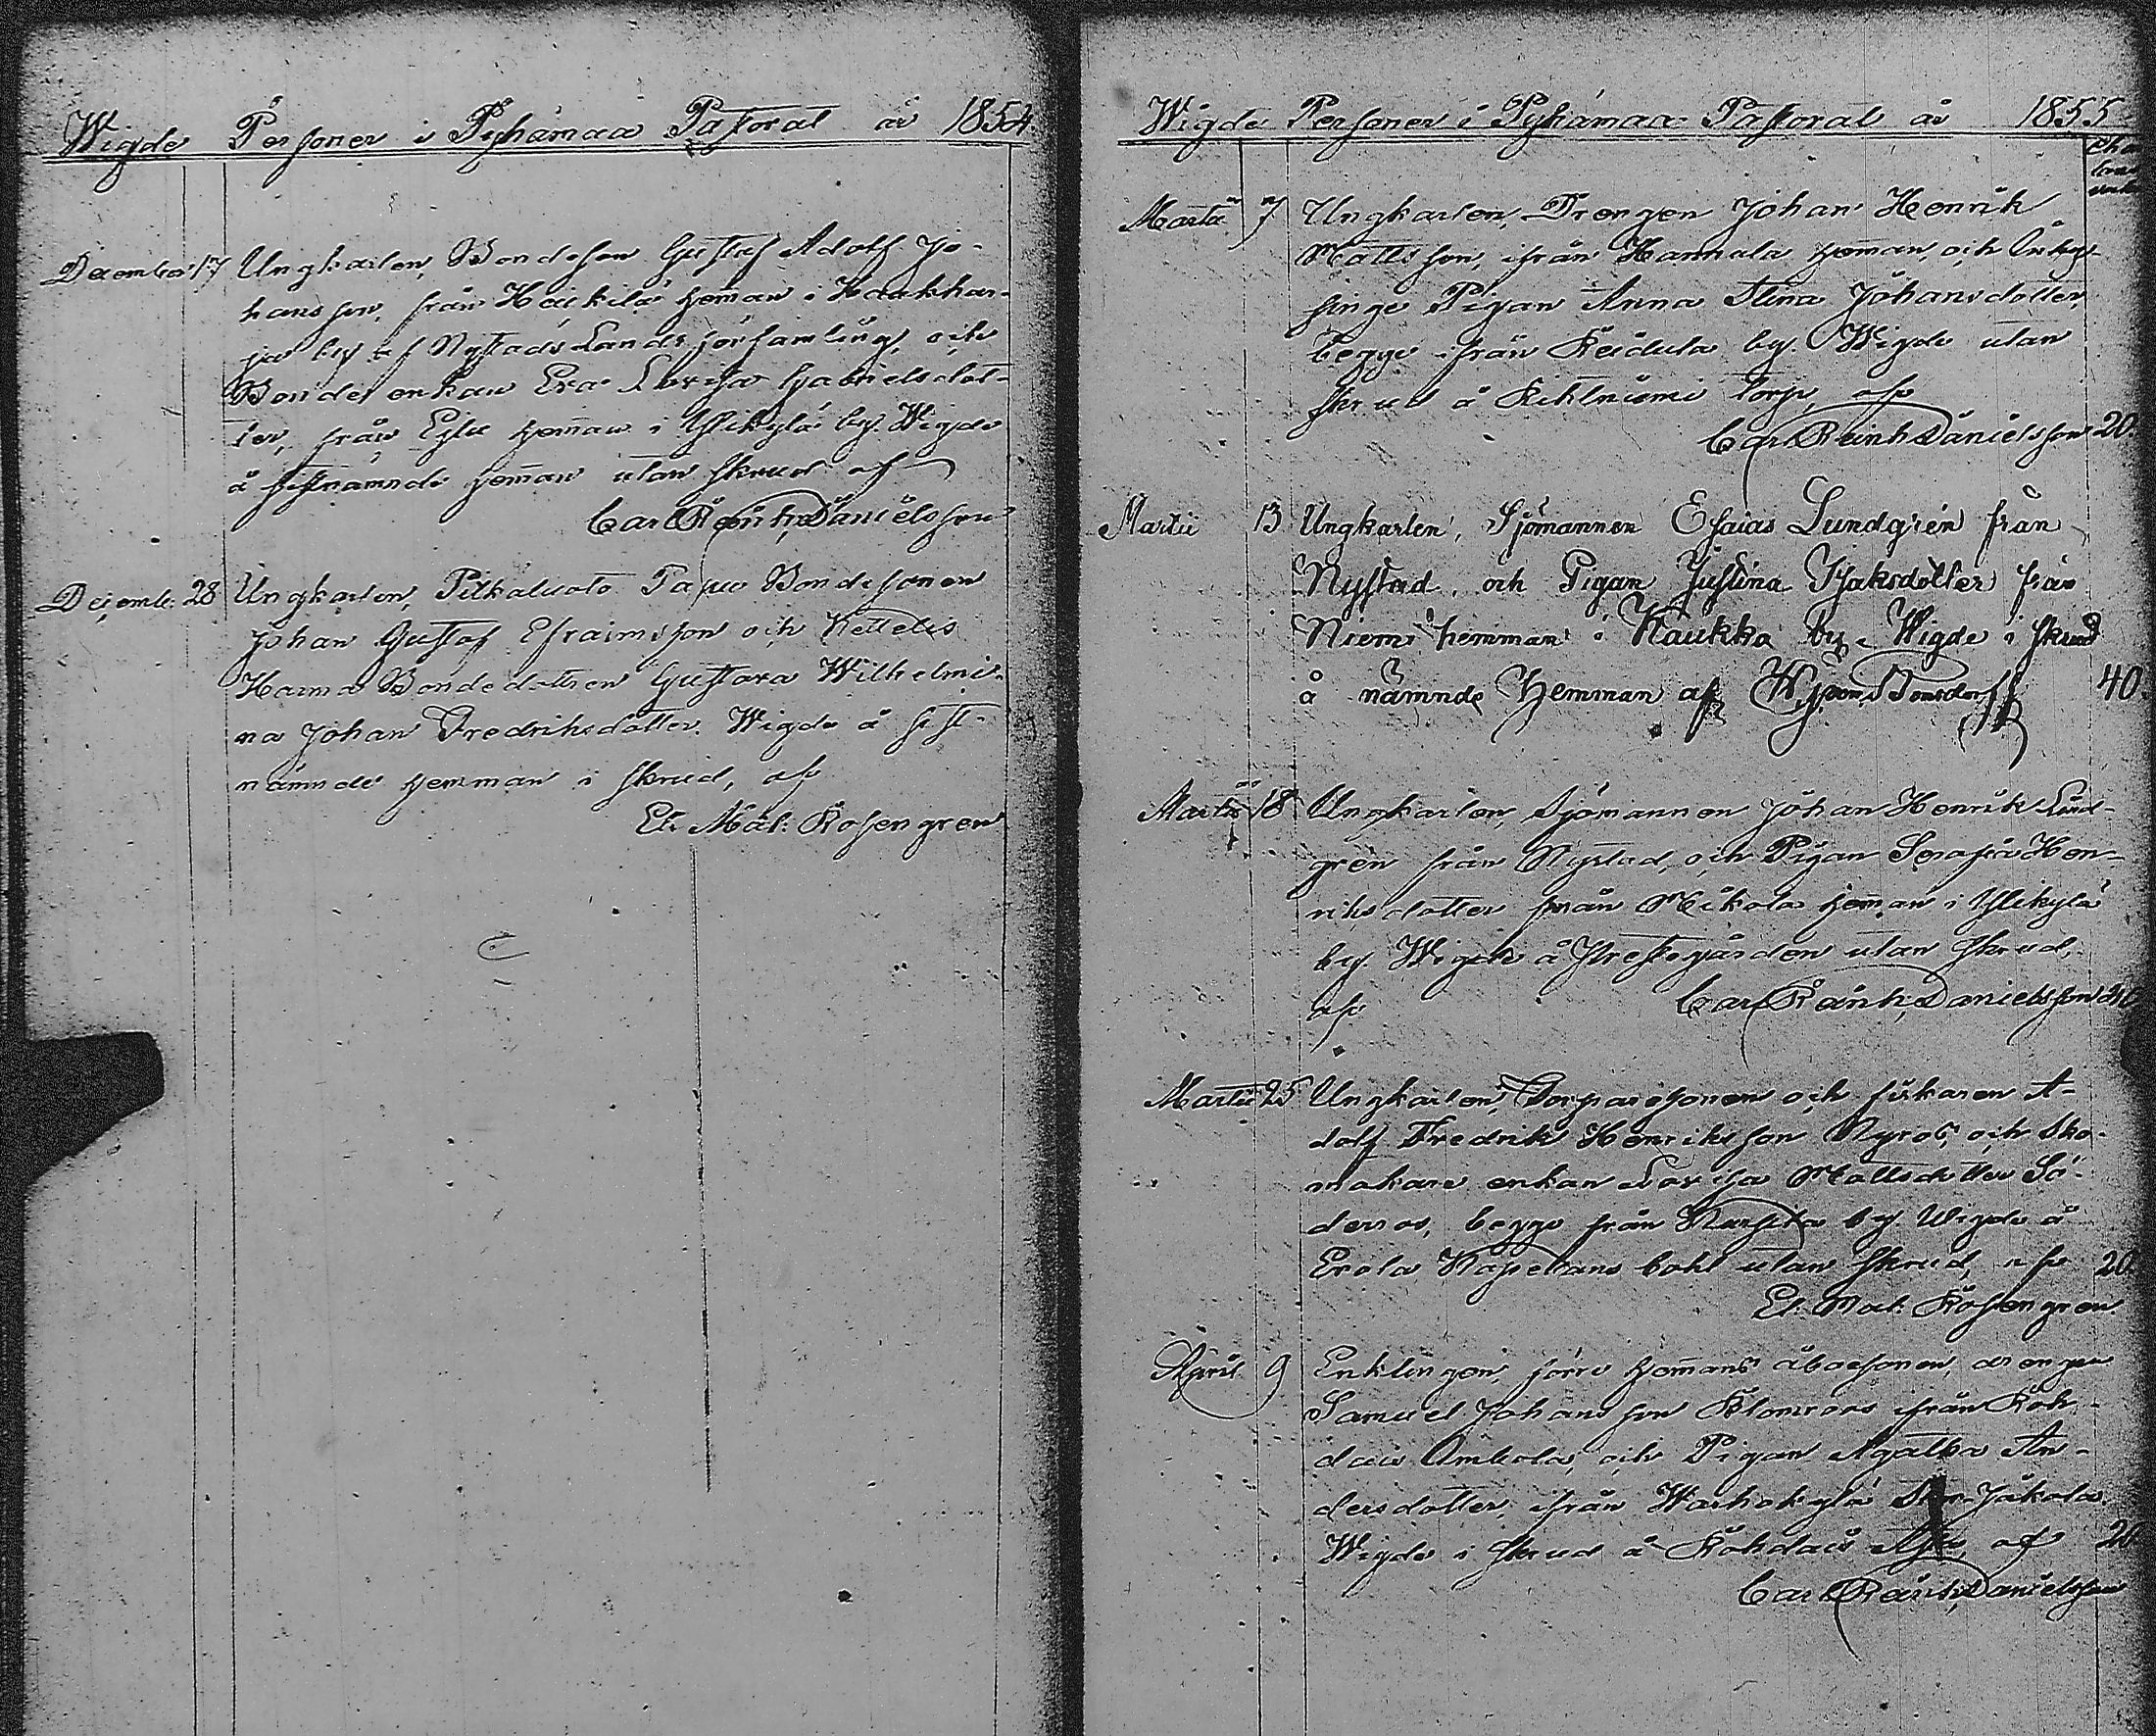 Wigde Personer i Pyhämaa Pastorat år 1854.
December 17 Ungkarlen, Bondesonen Gustaf Adolf Jo-
hansson, från Heikilä hemman i Haukhar-
ja by af Nystads Lands församling, och
Bonde enkan Eva Lovisa Gabrielsdot-
ter, från Eylu hemman i Ylikylä by. Wigde
å sistnämnde hemman utan skrud af
Carl Reinh. Danielsson
Decemb. 28 Ungkarlen, Pitkäluoto Papu Bondesonen
Johan Gustaf Efraimsson och Kettelis
Haima Bondedottren Gustava Wilhelmi-
na Johan Fredriksdotter. Wigde å sist-
nämnde hemman i skrud, af
El. Mat. Rosengren
Wigde Personer i Pyhämaa Pastorat år 1855
Martii 7 Ungkarlen, Drengen Johan Henrik
Mattsson, ifrån Hannala hemman, och Inhy-
singe Pigan Anna Stina Johansdotter,
begge ifrån Reidula by. Wigde utan
skrud å Kihlniemi torp, af
Carl Reinh. Danielsson 20
Martii 13 Ungkarlen, Sjömannen Esaias Lundgrén från
Nystad, och Pigan Justina Isaksdotter från
Niemi hemman i Kaukka by. Wigde i skrud
å nämnde hemman af W. von Bonsdorff 40
Martii 18 Ungkarlen, Sjömannen Johan Henrik Lund-
grén från Nystad, och Pigan Serafia Hen-
riksdotter från Mikola hemman i Ylikylä
by. Wigde å Prestegården utan skrud,
af Carl Reinh. Danielsson 20
Martii 25 Ungkarlen, Torparesonen och fiskaren A-
dolf Fredrik Henriksson Nyroos, och Sko-
makare enkan Lovisa Mattsdotter Sö-
derros, begge från Kursila by. Wigde å
Erola Kapellans bohl utan skrud, af 20
El. Mat. Rosengren
April 9 Enklingen, förre hemmans åboesonen, drengen
Samuel Johansson Blomroos ifrån Röh-
dais Ombola, och Pigan Agatha An-
dersdotter, ifrån Warhokylä Jäkola.
Wigde i skrud å Röhdais af 20
Carl Reinh. Danielsson